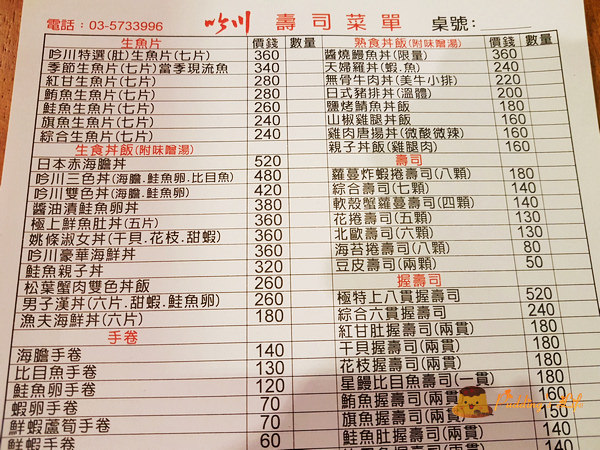 電話：03-5733996 吟川 壽司菜單 桌號：
生魚片 價錢 數量
吟川特選(肚)生魚片(七片) 360
季節生魚片(七片)當季現流魚 340
紅甘生魚片(七片) 280
鮪魚生魚片(七片) 280
鮭魚生魚片(七片) 260
旗魚生魚片(七片) 240
綜合生魚片(七片) 240
生食丼飯(附味噌湯)
日本赤海膽丼 520
吟川三色丼(海膽.鮭魚卵.比目魚) 480
吟川雙色丼(海膽.鮭魚卵) 420
醬油漬鮭魚卵丼 380
極上鮮魚肚丼(五片) 360
姚條淑女丼(干貝.花枝.甜蝦) 360
吟川豪華海鮮丼 360
鮭魚親子丼 320
松葉蟹肉雙色丼飯 260
男子漢丼(六片.甜蝦.鮭魚卵) 260
漁夫海鮮丼(六片) 180
手卷
海膽手卷 140
比目魚手卷 130
鮭魚卵手卷 120
蝦卵手卷 70
鮮蝦蘆筍手卷 70
鮮蝦手卷 60
熟食丼飯(附味噌湯) 價錢 數量
醬燒鰻魚丼(限量) 360
天婦羅丼(蝦.魚) 240
無骨牛肉丼(美牛小排) 220
日式豬排丼(溫體) 200
鹽烤鯖魚丼飯 180
山椒雞腿丼飯 160
雞肉唐揚丼(微酸微辣) 160
親子丼飯(雞腿肉) 160
壽司
蘿蔓炸蝦捲壽司(八顆) 180
綜合壽司(七顆) 140
軟殼蟹蘿蔓壽司(四顆) 140
花捲壽司(五顆) 130
北歐壽司(六顆) 130
海苔捲壽司(八顆) 80
豆皮壽司(兩顆) 50
握壽司
極特上八貫握壽司 520
綜合六貫握壽司 240
紅甘肚握壽司(兩貫) 180
干貝握壽司(兩貫) 180
花枝握壽司(兩貫) 180
星鰻比目魚壽司(一貫) 180
鮪魚握壽司(兩貫) 160
旗魚握壽司(兩貫) 150
鮭魚肚握壽司(兩貫) 140